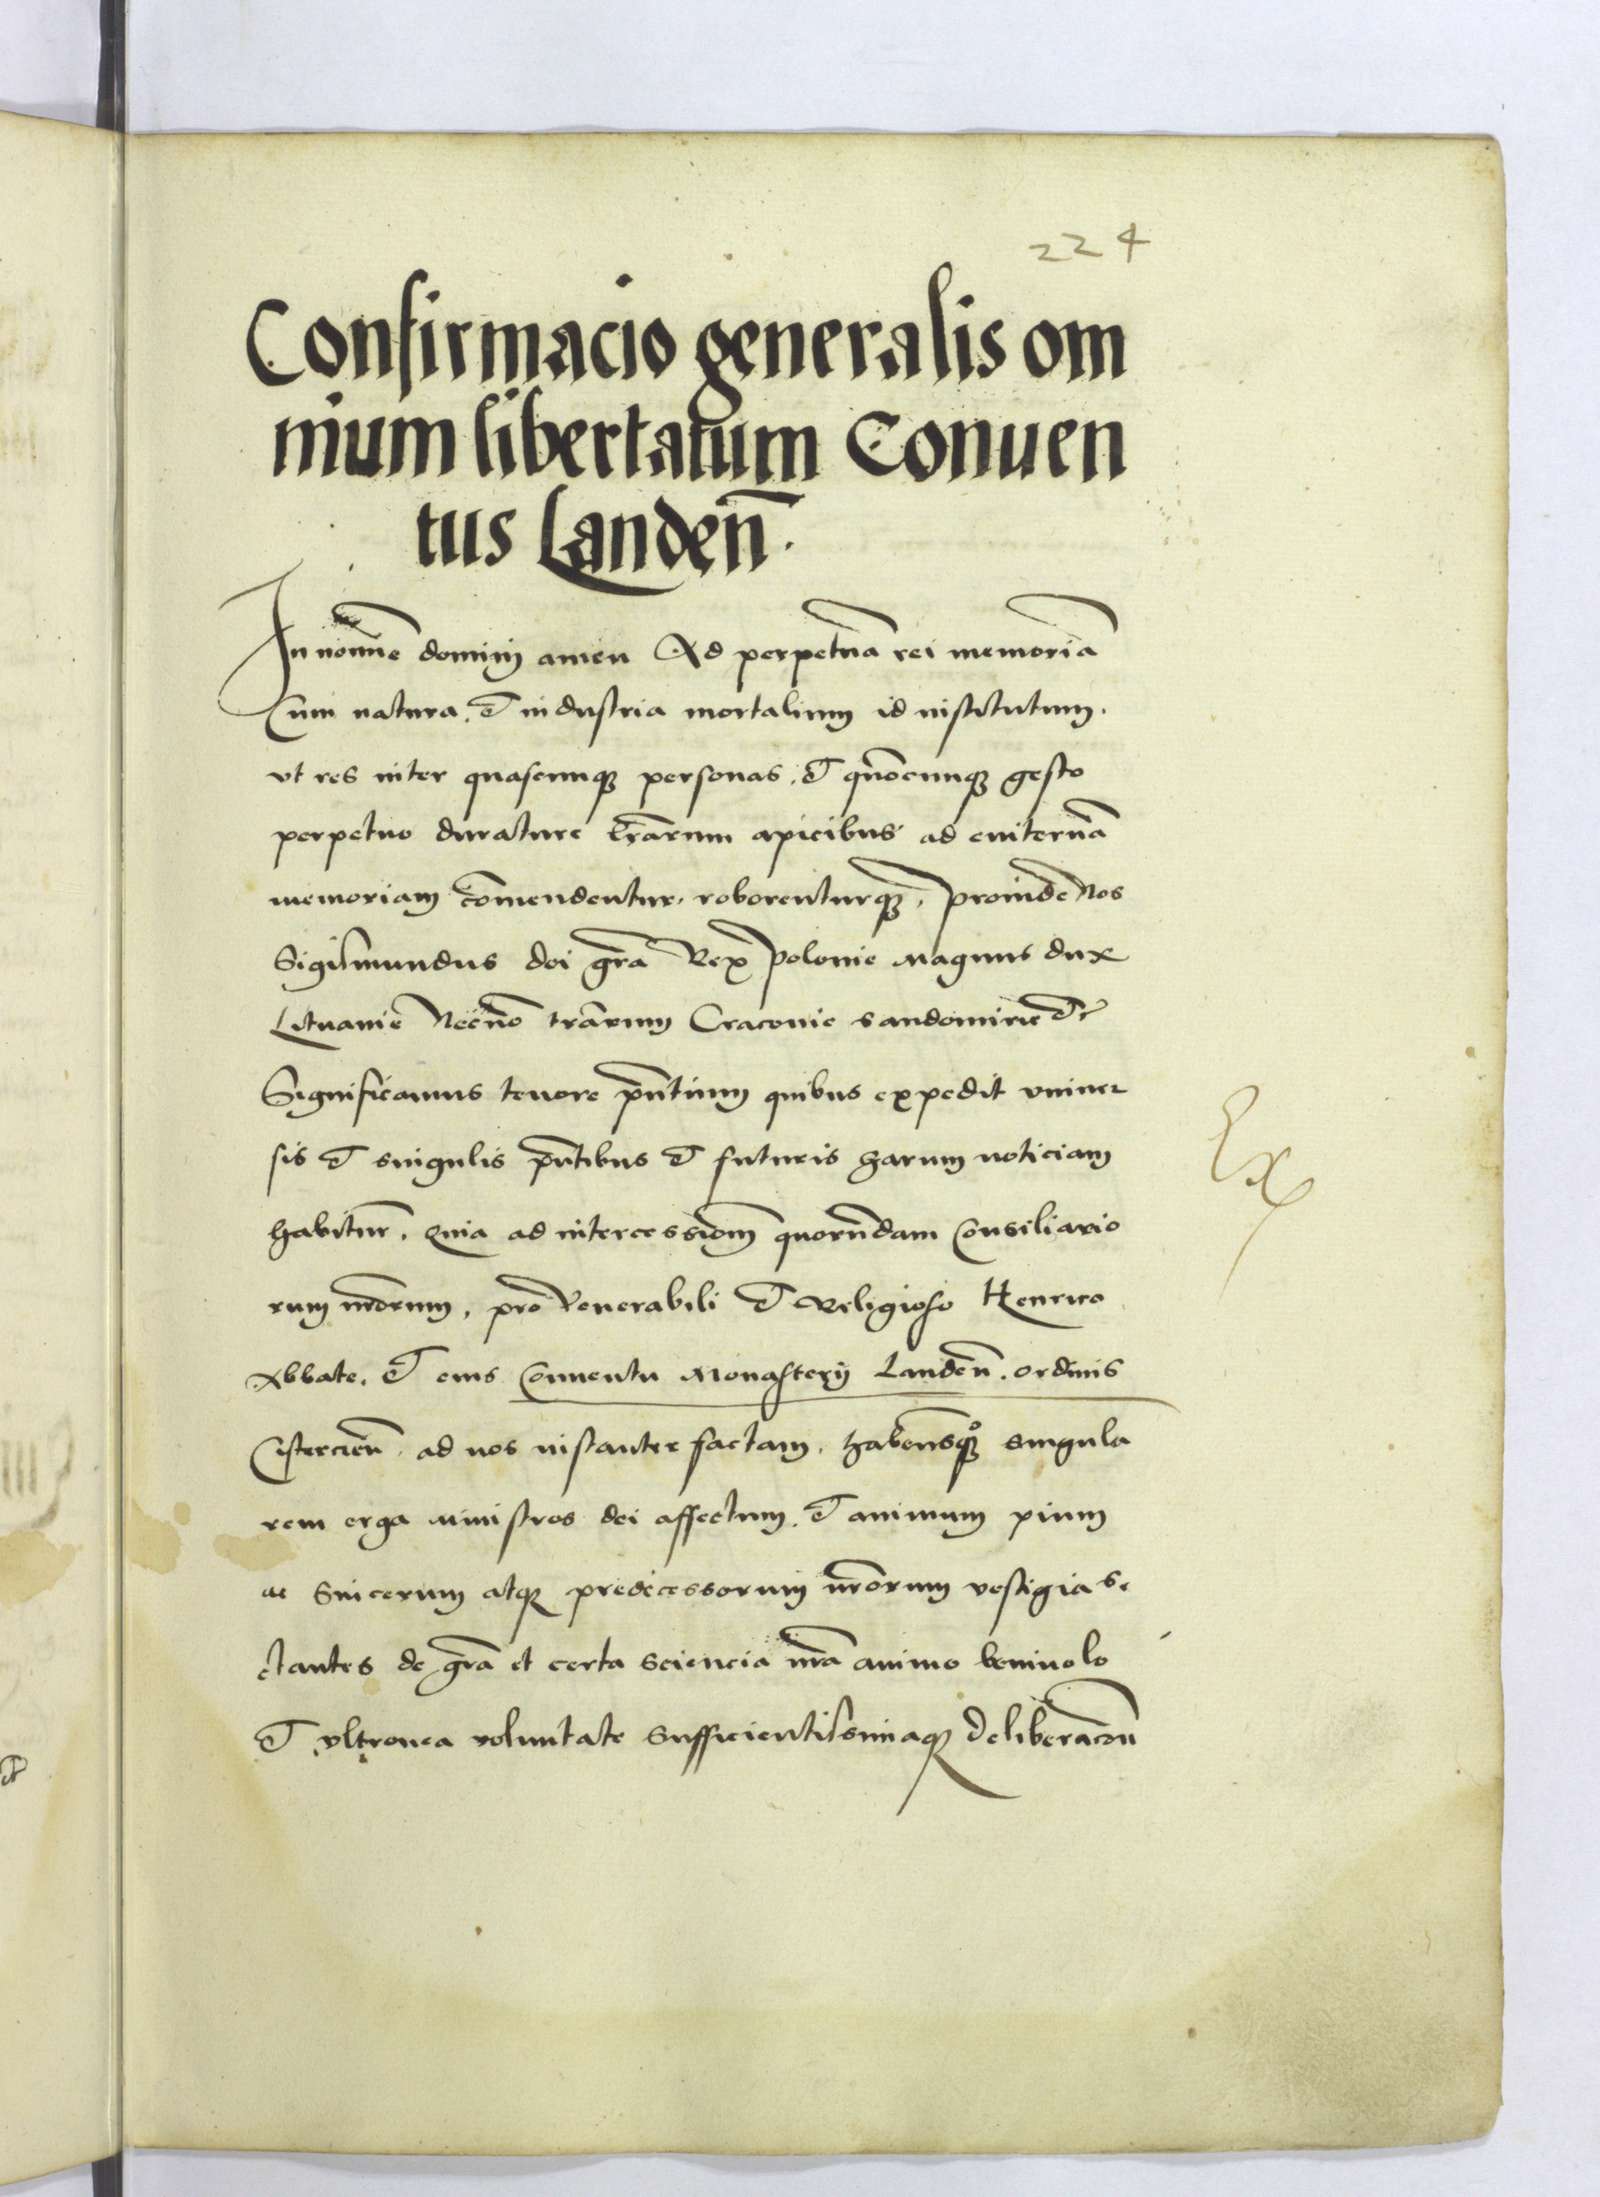 224
Confirmacio generalis om
nium libertatum Conuen
tus Landen̄.
In noīne dominj amen Ad perpetuā rei memoriā
Cum natura. et industria mortalium id institutum.
vt res inter quascunq̨ personas. et quōcunq̨ gesto
perpetuo durature lrārum apicibus ad euiternā
memoriam cōmendentur. roborenturq̨. proinde Nos
Sigismundus dei grā Rex Polonie Magnus dux
Lituanie Necnō trārum Cracouie Sandomirie etc
Significamus tenore pn̄tium quibus expedit vniuer
sis et singulis pn̄tibus et futuris harum noticiam
habitur̄. Quia ad intercessiōem quorūdam Consiliario
rum nrōrum. pro Venerabili et Religioso Henrico
Abbate. et eius Conuentu Monasterij Landen̄. ordinis
Cistercien̄. ad nos instanter factam. habentesq̨ singula
rem erga ministros dei affectum. et animum pium
ac Sincerum atq̨ predecessorum nrōrum vestigia se
ctantes de grā et certa sciencia nrā animo beniuolo
et vltronea voluntate sufficientissimaq̨ deliberacōn
Ex